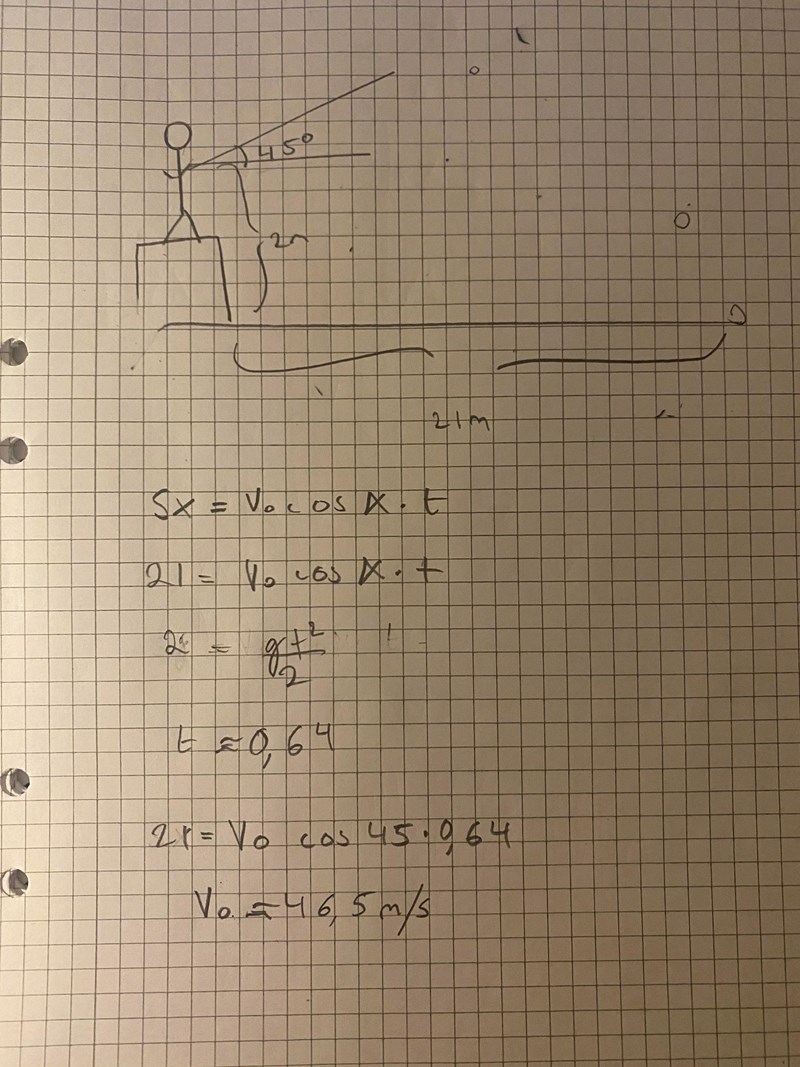 45°
2m
21m
Sx = V₀ cos α · t
21 = V₀ cos α · t
2 = gt²/2
t ≈ 0,64
21 = V₀ cos 45 · 0,64
V₀ = 46,5 m/s